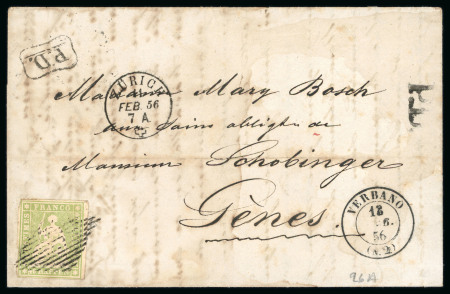 P.D.
ZÜRICH
FEB. 56
7 A.
Madame Mary Bosch
aux soins obligés de
Monsieur Schobinger
Gênes.
FRANCO
VERBANO
13
56
(N. 2)
26A